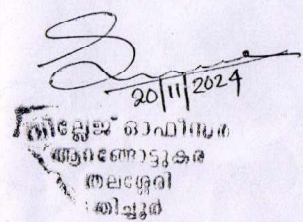 20/11/2024
വില്ലേജ് ഓഫീസർ
ആറങ്ങോട്ടുകര
തലശ്ശേരി
തിച്ചൂർ